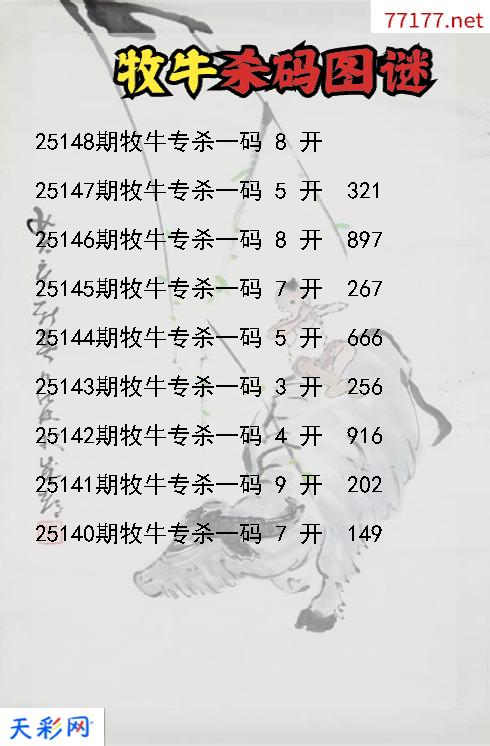 77177.net
牧牛杀码图谜
25148期牧牛专杀一码 8 开
25147期牧牛专杀一码 5 开 321
25146期牧牛专杀一码 8 开 897
25145期牧牛专杀一码 7 开 267
25144期牧牛专杀一码 5 开 666
25143期牧牛专杀一码 3 开 256
25142期牧牛专杀一码 4 开 916
25141期牧牛专杀一码 9 开 202
25140期牧牛专杀一码 7 开 149
天彩网